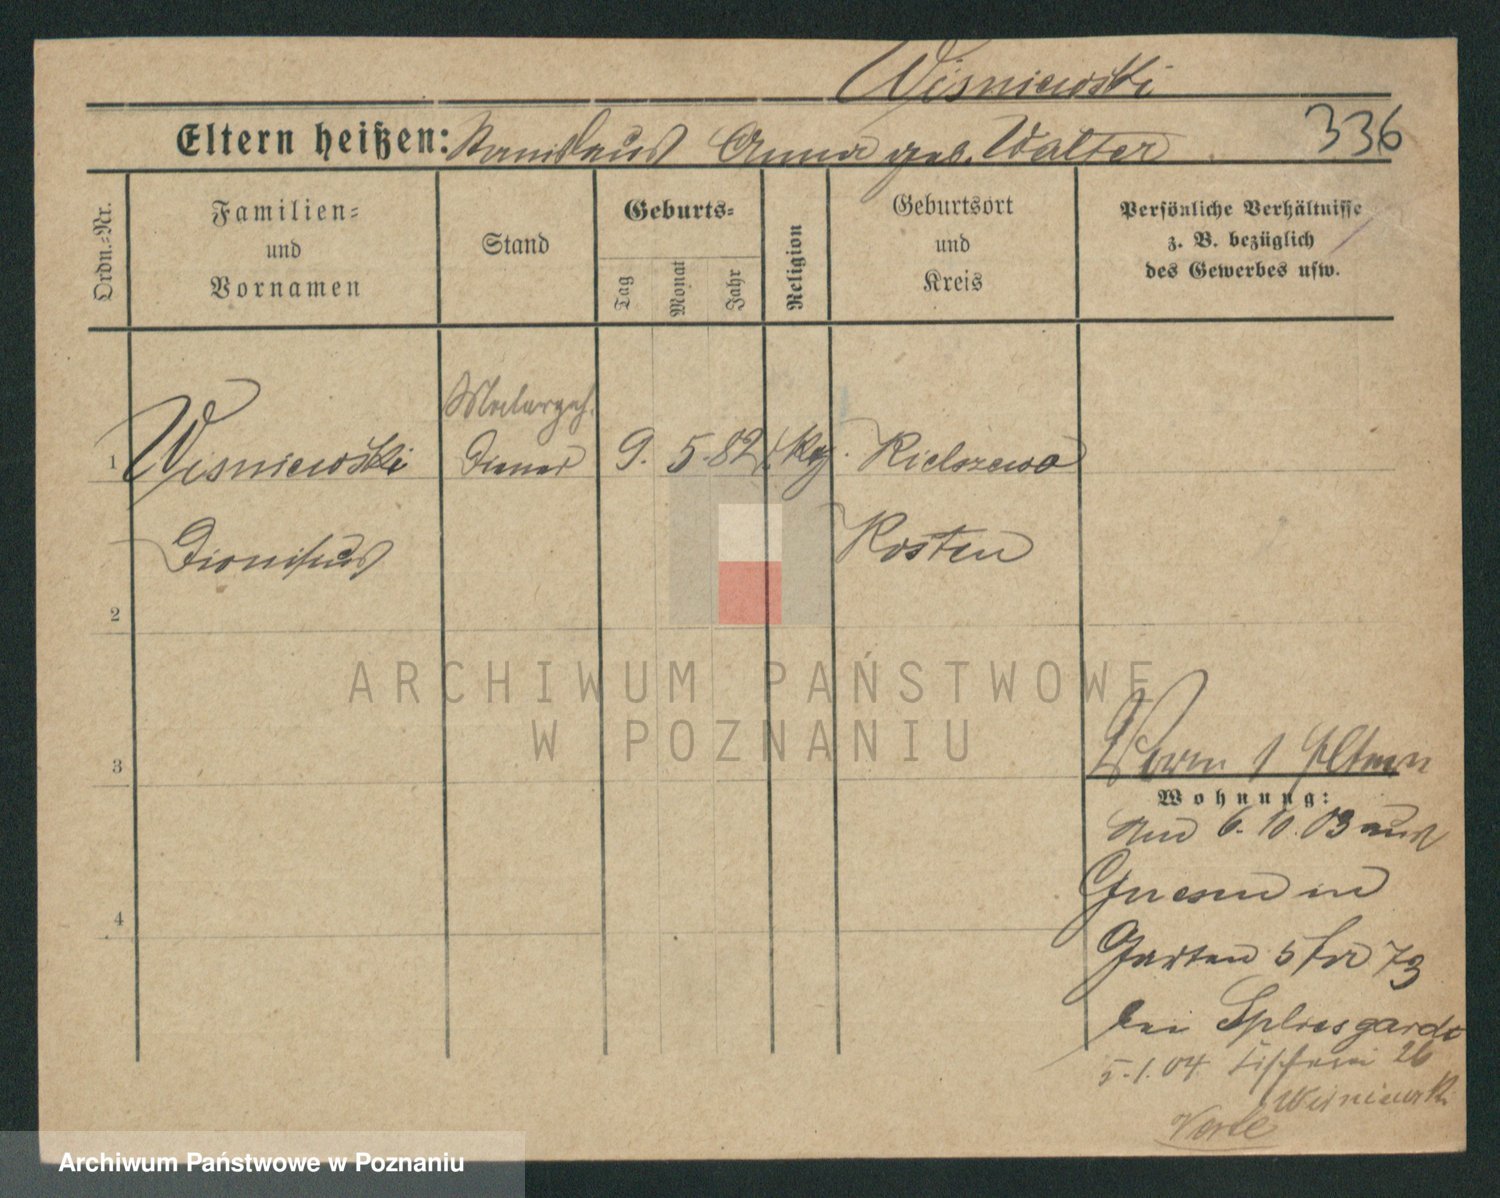 Wisniewski
Eltern heißen: Stanislaus Anna geb. Walter
336
Ordn.-Nr.
Familien-
und
Vornamen
Stand
Geburts-
Tag
Monat
Jahr
Religion
Geburtsort
und
Kreis
Persönliche Verhältnisse
z. B. bezüglich
des Gewerbes usw.
Malergeh.
1 Wisniewski Diener 9. 5. 82 Kielczewo
Dionisius Kosten
2
3
4
Eltern
Wohnung:
Am 6. 10. 03 aus
Gnesen in
Garten Str 73
bei
5.1.04 Fischerei 26
Wisniewski
ARCHIWUM PAŃSTWOWE
W POZNANIU
Archiwum Państwowe w Poznaniu